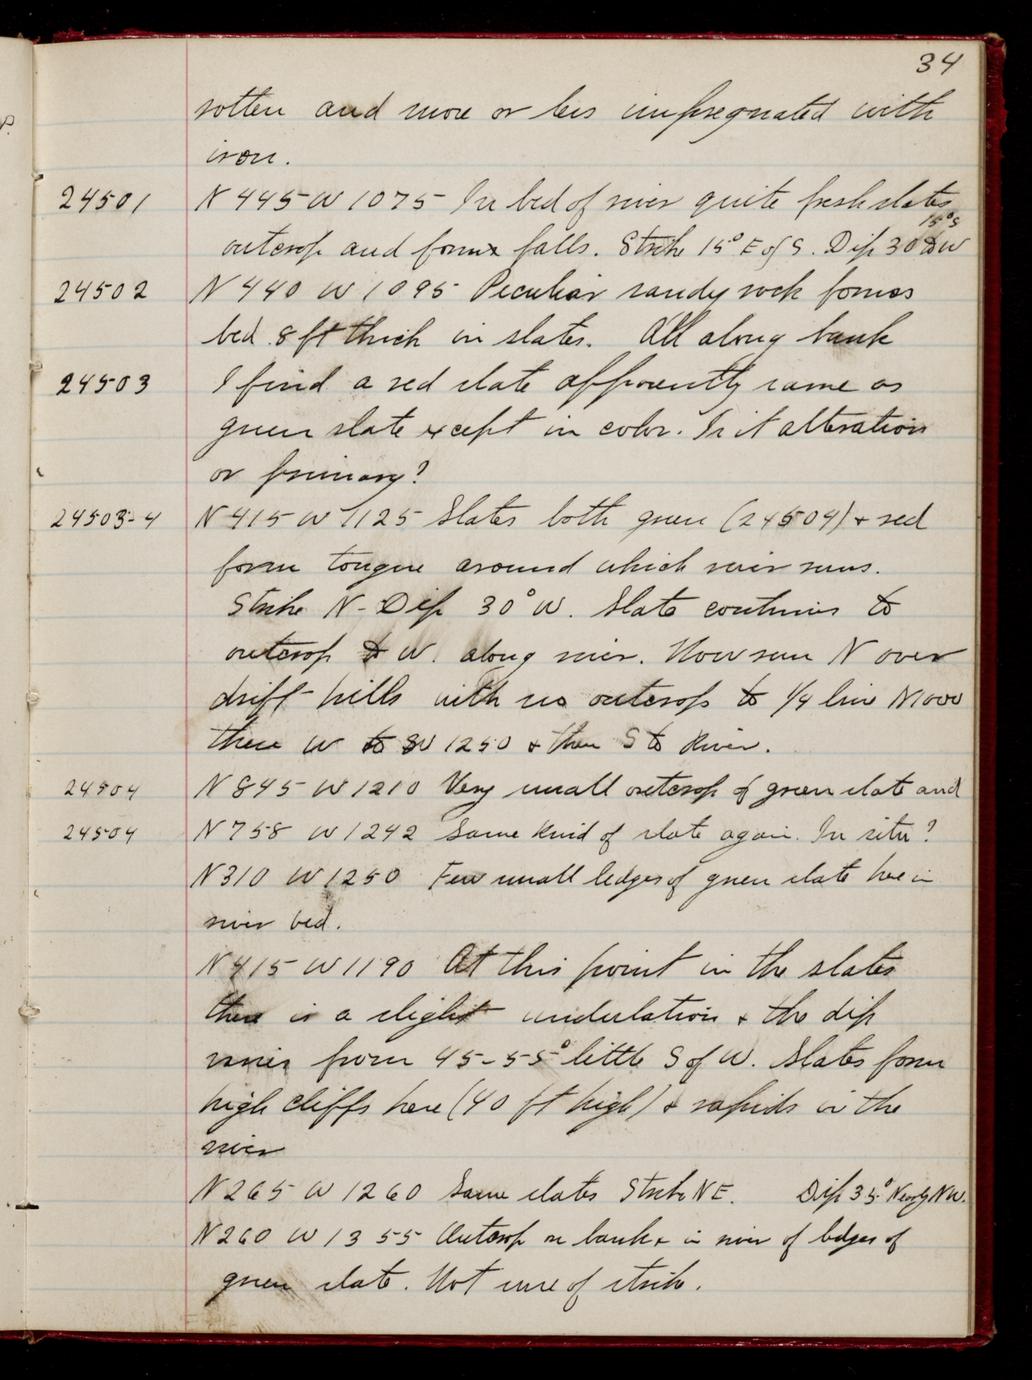 34
rotten and more or less impregnated with
iron.
24501 N 445 W 1075 In bed of river quite fresh slates
outcrop and forms falls. Strike 15° E of S. Dip 30 15° S W
24502 N 440 W 1095 Peculiar sandy rock forms
bed 8 ft thick in slates. All along bank
24503 I find a red slate apparently same as
green slate except in color. Is it alteration
or primary?
24503-4 N 415 W 1125 Slates both green (24504) + red
form tongue around which river runs.
Strike N - Dip 30° W. Slate continues to
outcrop to W. along river. Now run N over
drift hills with no outcrop to 1/4 line N1000
thence W to W 1250 + then S to River.
24504 N 845 W 1210 Very small outcrop of green slate and
24504 N 758 W 1242 Same kind of slate again. In situ?
N 310 W 1250 Few small ledges of green slate here in
river bed.
N 415 W 1190 At this point in the slates
there is a slight undulation + the dip
varies from 45-55° little S of W. Slates form
high cliffs here (40 ft high) + rapids in the
river
N 265 W 1260 Same slates Strike NE. Dip 35° Nearly NW.
N 260 W 1355 Outcrop on bank + in river of ledges of
green slate. Not sure of strike.